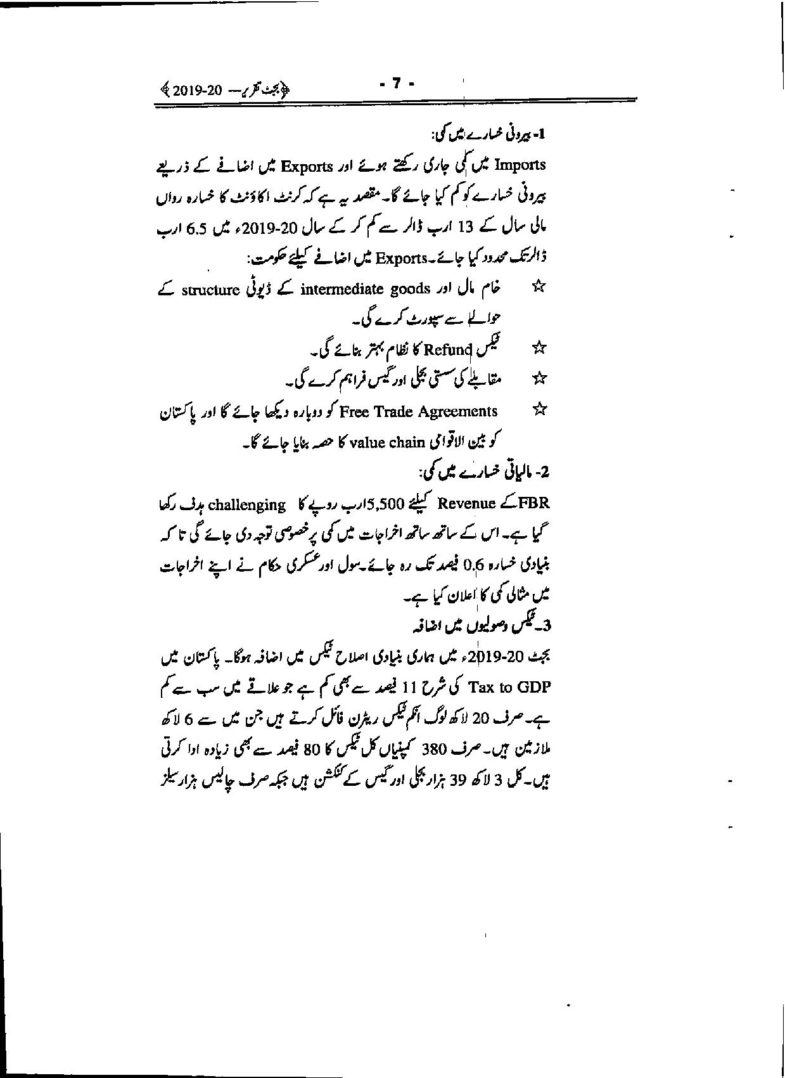 - 7 -
﴿بجٹ تقریر— 20-2019﴾
1- بیرونی خسارے میں کمی:
Imports میں کمی جاری رکھتے ہوئے اور Exports میں اضافے کے ذریعے
بیرونی خسارے کو کم کیا جائے گا۔ مقصد یہ ہے کہ کرنٹ اکاؤنٹ کا خسارہ رواں
مالی سال کے 13 ارب ڈالر سے کم کر کے سال 20-2019ء میں 6.5 ارب
ڈالر تک محدود کیا جائے۔ Exports میں اضافے کیلئے حکومت:
☆ خام مال اور intermediate goods کے ڈیوٹی structure کے
حوالے سے سپورٹ کرے گی۔
☆ ٹیکس Refund کا نظام بہتر بنائے گی۔
☆ مقابلے کی سستی بجلی اور گیس فراہم کرے گی۔
☆ Free Trade Agreements کو دوبارہ دیکھا جائے گا اور پاکستان
کو بین الاقوامی value chain کا حصہ بنایا جائے گا۔
2- مالیاتی خسارے میں کمی:
FBR کے Revenue کیلئے 5,500 ارب روپے کا challenging ہدف رکھا
گیا ہے۔ اس کے ساتھ ساتھ اخراجات میں کمی پر خصوصی توجہ دی جائے گی تا کہ
بنیادی خسارہ 0.6 فیصد تک رہ جائے۔ سول اور عسکری حکام نے اپنے اخراجات
میں مثالی کمی کا اعلان کیا ہے۔
3۔ ٹیکس وصولیوں میں اضافہ
بجٹ 20-2019ء میں ہماری بنیادی اصلاح ٹیکس میں اضافہ ہوگا۔ پاکستان میں
Tax to GDP کی شرح 11 فیصد سے بھی کم ہے جو علاقے میں سب سے کم
ہے۔ صرف 20 لاکھ لوگ انکم ٹیکس ریٹرن فائل کرتے ہیں جن میں سے 6 لاکھ
ملازمین ہیں۔ صرف 380 کمپنیاں کل ٹیکس کا 80 فیصد سے بھی زیادہ ادا کرتی
ہیں۔ کل 3 لاکھ 39 ہزار بجلی اور گیس کے کنکشن ہیں جبکہ صرف چالیس ہزار سیلز